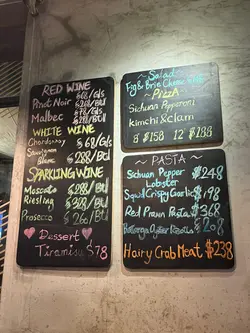 RED WINE
Pinot Noir $68/Gls
$288/Btl
Malbec $288/Btl
WHITE WINE
Chardonnay $68/Gls
Sauvignon
Blanc $288/Btl
SPARKLING WINE
Moscato $288/Btl
Riesling $328/Btl
Prosecco $260/Btl
Dessert
Tiramisu $78
~ Salad ~
Fig & Brie Cheese
~ PIZZA ~
Sichuan Pepperoni
kimchi & clam
8 $158 12 $188
~ PASTA ~
Sichuan Pepper $248
Lobster
Squid Crispy Garlic $198
Red Prawn Pasta $368
Oyster $208
Hairy Crab Meat $238